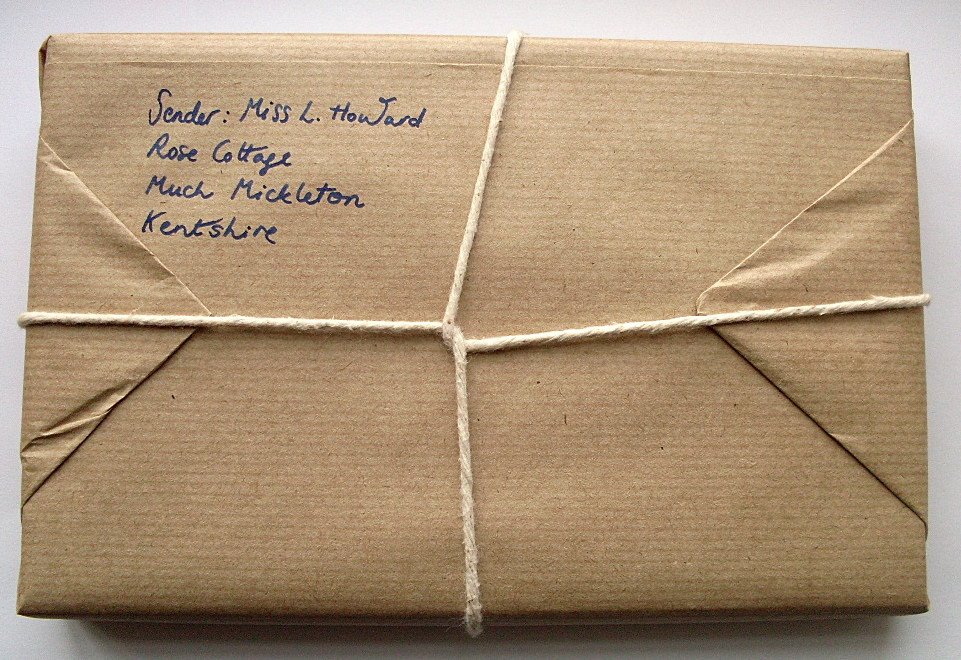 Sender: Miss L. Howard
Rose Cottage
Much Mickleton
Kentshire